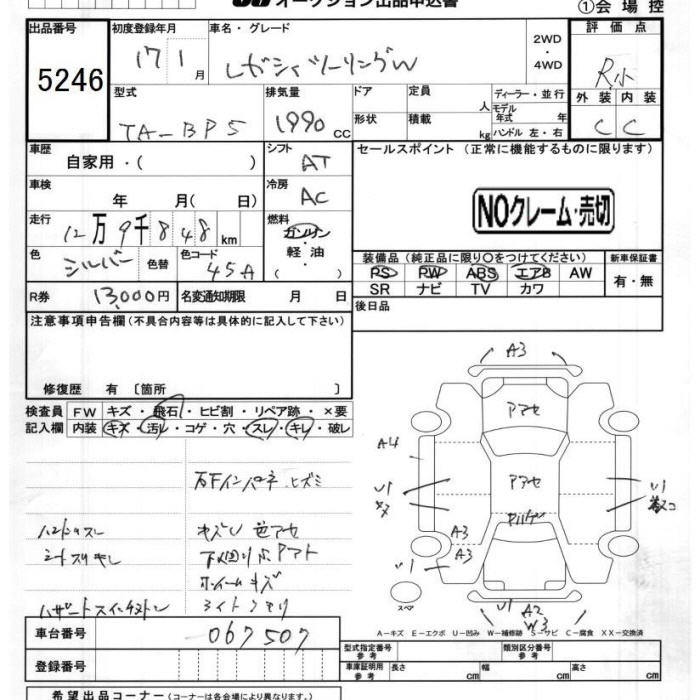 オークション出品申込書
①会場控
出品番号 初度登録年月 車名・グレード 評価点
5246 17 1月 レガシィツーリングW 2WD・4WD R小
外装 内装
C C
型式 排気量 ドア 定員 人 ディーラー・並行
TA-BP5 1990 CC 形状 積載 kg モデル年式 年 ハンドル 左・右
車歴 シフト セールスポイント (正常に機能するものに限ります)
自家用・( ) AT
車検 冷房
年 月( 日) AC
NOクレーム・売切
走行 燃料
12万9千848km ガソリン・軽油( )
色 シルバー 色替 色コード 45A
装備品(純正品に限り○をつけてください) 新車保証書
PS PW ABS エアB AW 有・無
SR ナビ TV カワ
R券 13,000円 名変通知期限 月 日
後日品
注意事項申告欄(不具合内容等は具体的に記入して下さい)
修復歴 有 [箇所 ]
検査員記入欄 FW キズ・飛石・ヒビ割・リペア跡・×要
内装 キズ・汚レ・コゲ・穴・スレ・キレ・破レ
A3
アアセ
A4
アアセ
U1
キズ
U1
A3
A3
U1
スペア
U1 A2
W3
右Fインパネ ヒズミ
ハンドルスレ キズU 色アセ
シートスリキレ 下回リサビアト
ホイールキズ
ライトクモリ
A-キズ E-エクボ U-凹み W-補修跡 S-サビ C-腐食 XX-交換済
車台番号 067507
登録番号
型式指定番号 参考 類別区分番号 参考
車庫証明用 参考 長さ cm 幅 cm 高さ cm
希望出品コーナー(コーナーは各会場により異なります)